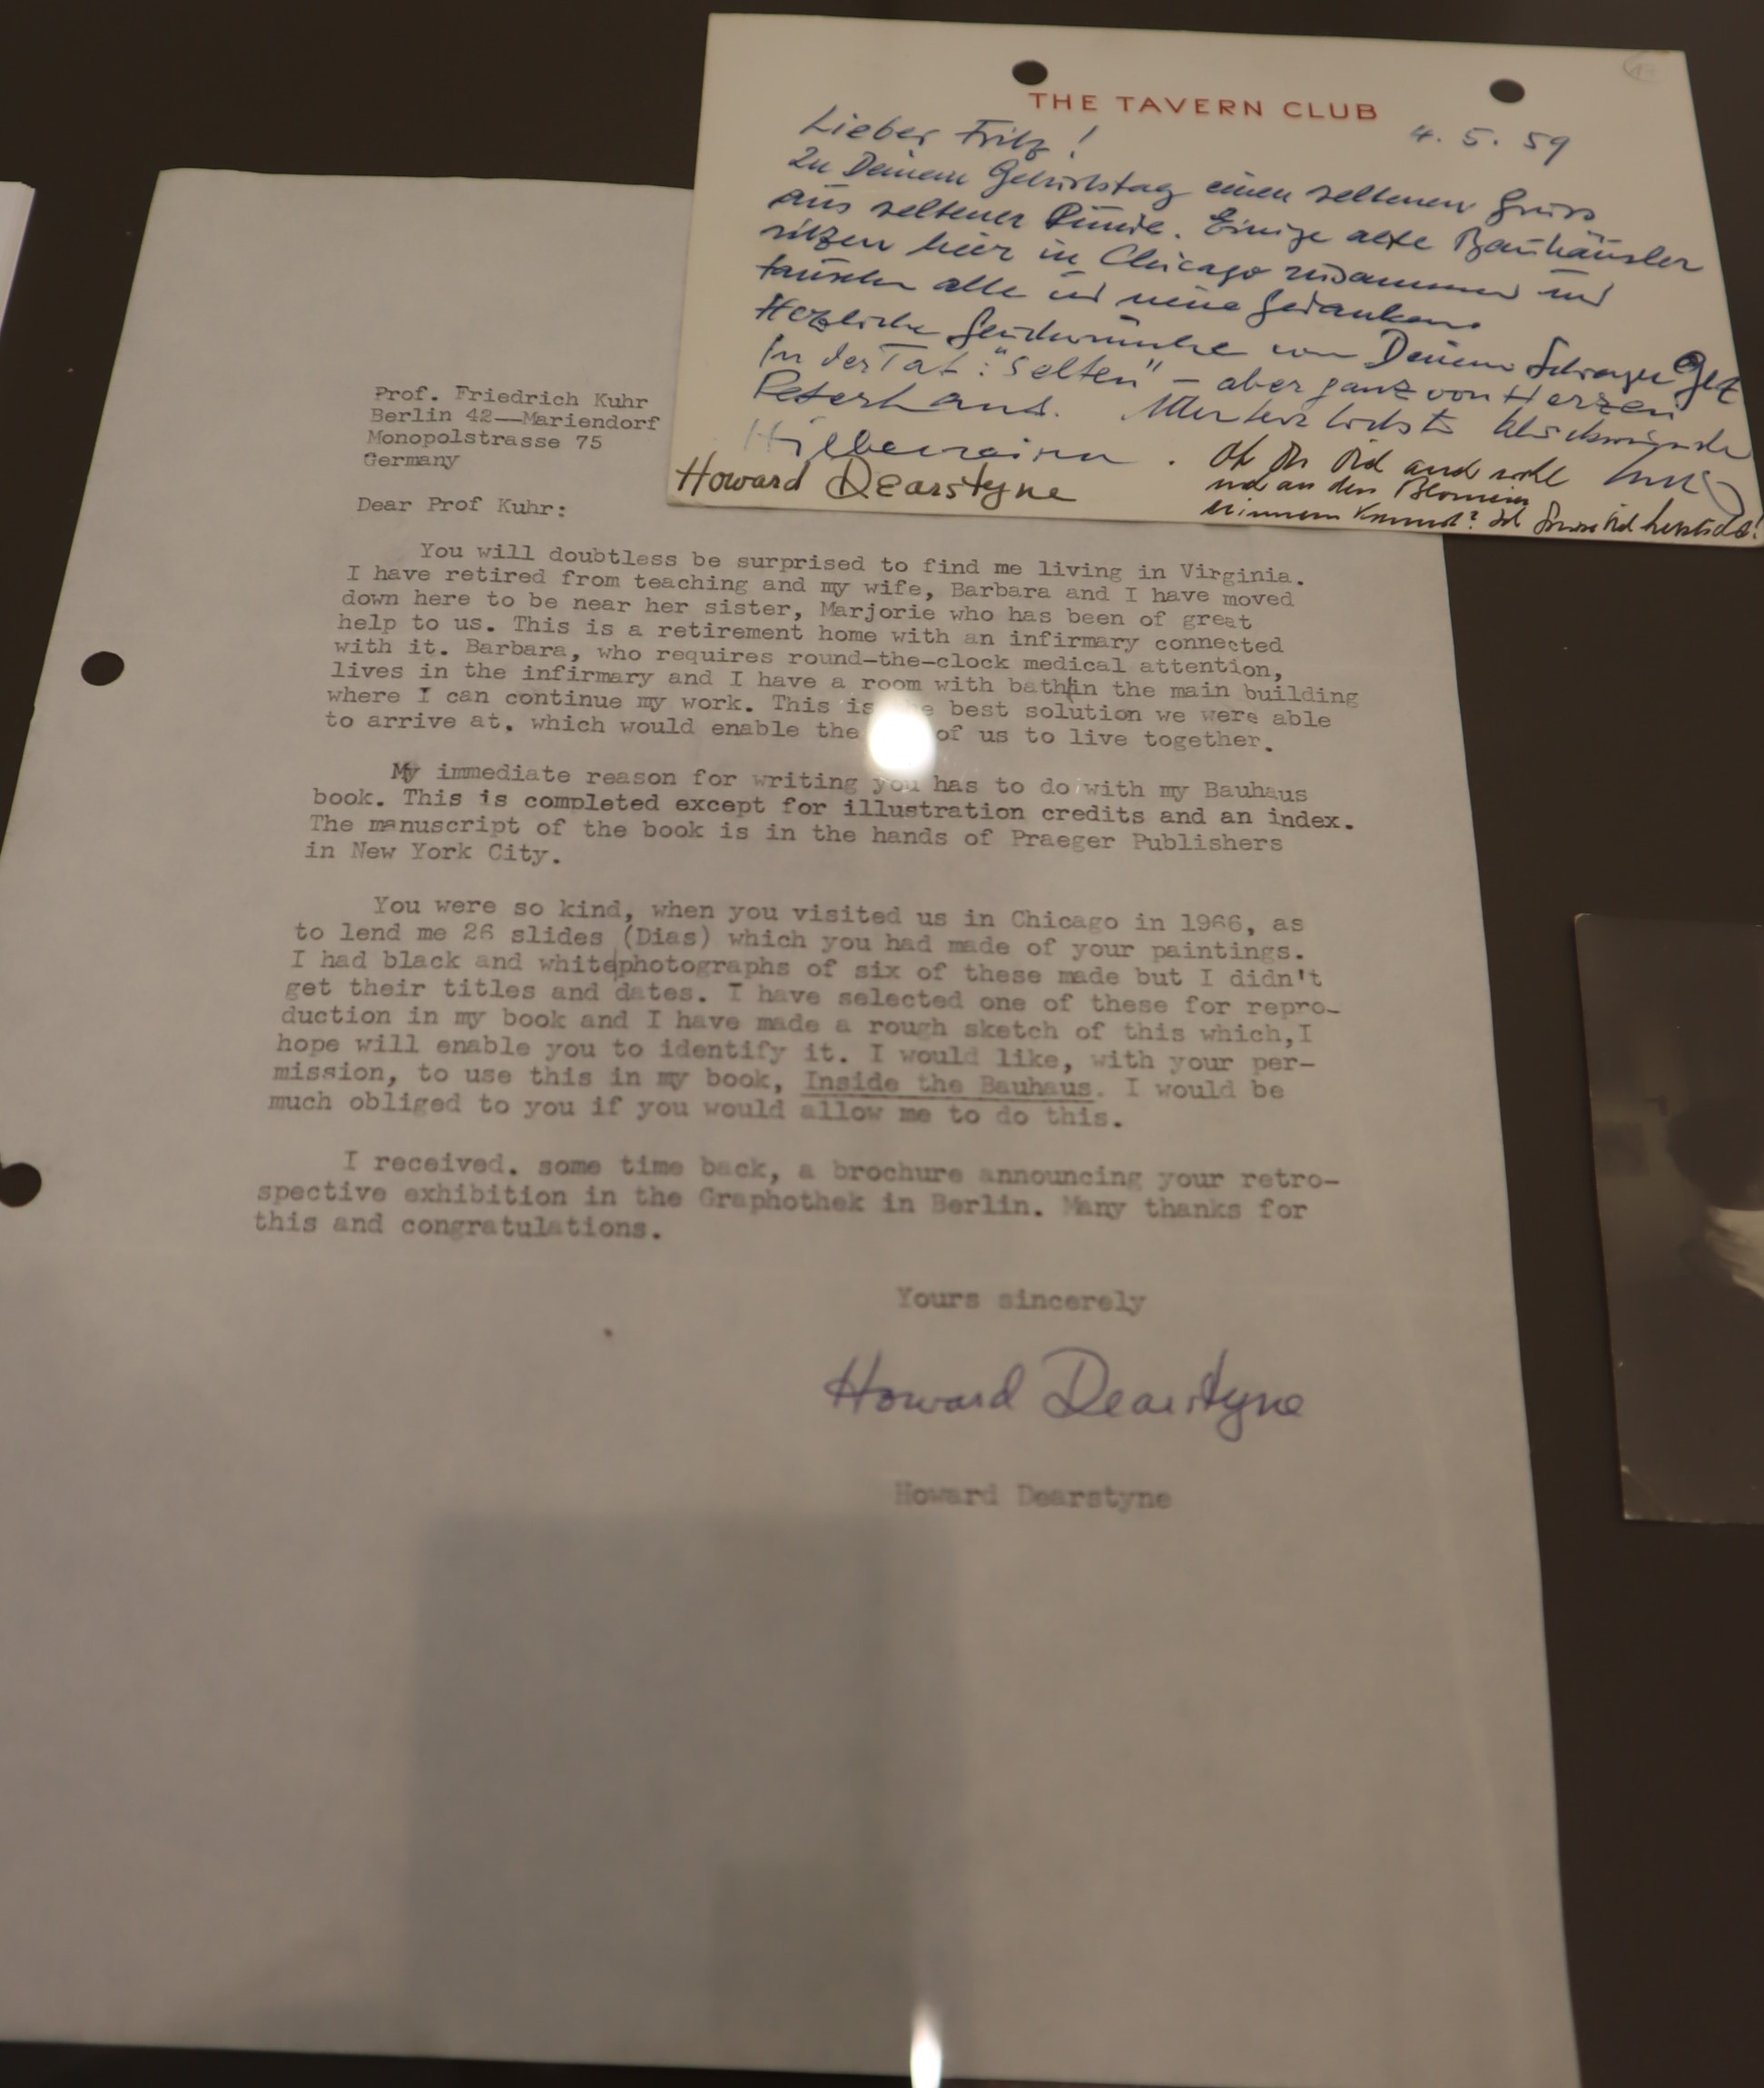 THE TAVERN CLUB
4. 5. 59
Lieber Fritz!
Zu Deinem Geburtstag einen seltenen Gruss
aus seltener Runde. Einige alte Bauhäusler
sitzen hier in Chicago zusammen und
tauschen alte und neue Gedanken.
Herzliche von Deinem
In der Tat: "selten" – aber ganz von Herzen
Peterhans.
Hilberseimer.
Howard Dearstyne
Prof. Friedrich Kuhr
Berlin 42—Mariendorf
Monopolstrasse 75
Germany
Dear Prof Kuhr:
You will doubtless be surprised to find me living in Virginia.
I have retired from teaching and my wife, Barbara and I have moved
down here to be near her sister, Marjorie who has been of great
help to us. This is a retirement home with an infirmary connected
with it. Barbara, who requires round-the-clock medical attention,
lives in the infirmary and I have a room with bath/in the main building
where I can continue my work. This is best solution we were able
to arrive at. which would enable the of us to live together.
My immediate reason for writing you has to do with my Bauhaus
book. This is completed except for illustration credits and an index.
The manuscript of the book is in the hands of Praeger Publishers
in New York City.
You were so kind, when you visited us in Chicago in 1966, as
to lend me 26 slides (Dias) which you had made of your paintings.
I had black and white/photographs of six of these made but I didn't
get their titles and dates. I have selected one of these for repro-
duction in my book and I have made a rough sketch of this which, I
hope will enable you to identify it. I would like, with your per-
mission, to use this in my book, Inside the Bauhaus. I would be
much obliged to you if you would allow me to do this.
I received. some time back, a brochure announcing your retro-
spective exhibition in the Graphothek in Berlin. Many thanks for
this and congratulations.
Yours sincerely
Howard Dearstyne
Howard Dearstyne